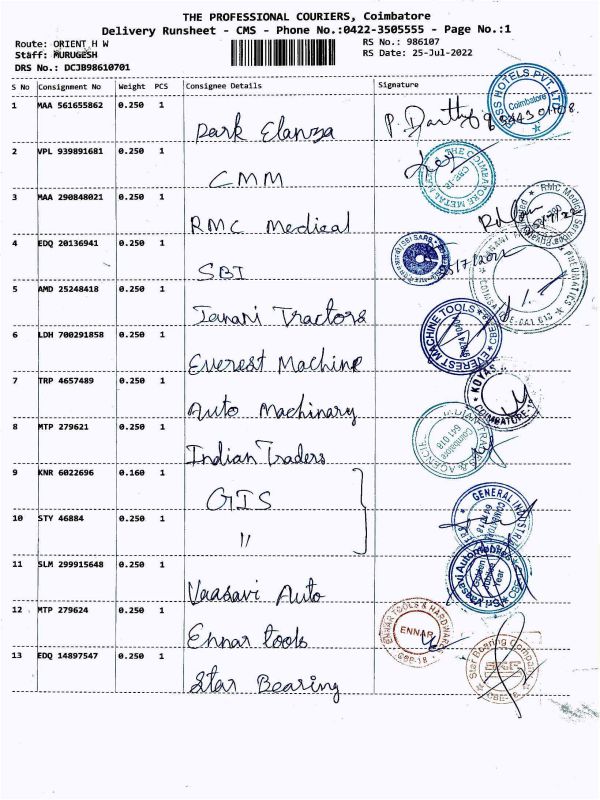 THE PROFESSIONAL COURIERS, Coimbatore
Delivery Runsheet - CMS - Phone No.:0422-3505555 - Page No.:1
Route: ORIENT H W
RS No.: 986107
Staff: MURUGESH
RS Date: 25-Jul-2022
DRS No.: DCJB98610701
S No Consignment No Weight PCS Consignee Details Signature
1 MAA 561655862 0.250 1 Park Elanza
HOTELS PVT. LTD
Coimbatore
2 VPL 939891681 0.250 1 CMM
THE COIMBATORE METAL
CBE-18
3 MAA 290848021 0.250 1 RMC Medical
RMC Medical Services
4 EDQ 20136941 0.250 1 SBI
5 AMD 25248418 0.250 1 Janani Tractors
PNEUMATICS
COIMBATORE-641 018
6 LDH 700291858 0.250 1 Everest Machine
EVEREST MACHINE TOOLS
7 TRP 4657489 0.250 1 Auto Machinary
COIMBATORE-18
8 MTP 279621 0.250 1 Indian Traders
INDIAN TRADERS & AGENCIES
Coimbatore
641 018
9 KNR 6022696 0.160 1 GIS
GENERAL INDUSTRIAL
10 STY 46884 0.250 1 "
11 SLM 299915648 0.250 1 Vaasavi Auto
Sri Vasavi Automobiles
12 MTP 279624 0.250 1 Ennar tools
ENNAR TOOLS & HARDWARES
ENNAR
CBE-18
13 EDQ 14897547 0.250 1 Star Bearing
Star Bearing Company
SKF
CBE-18